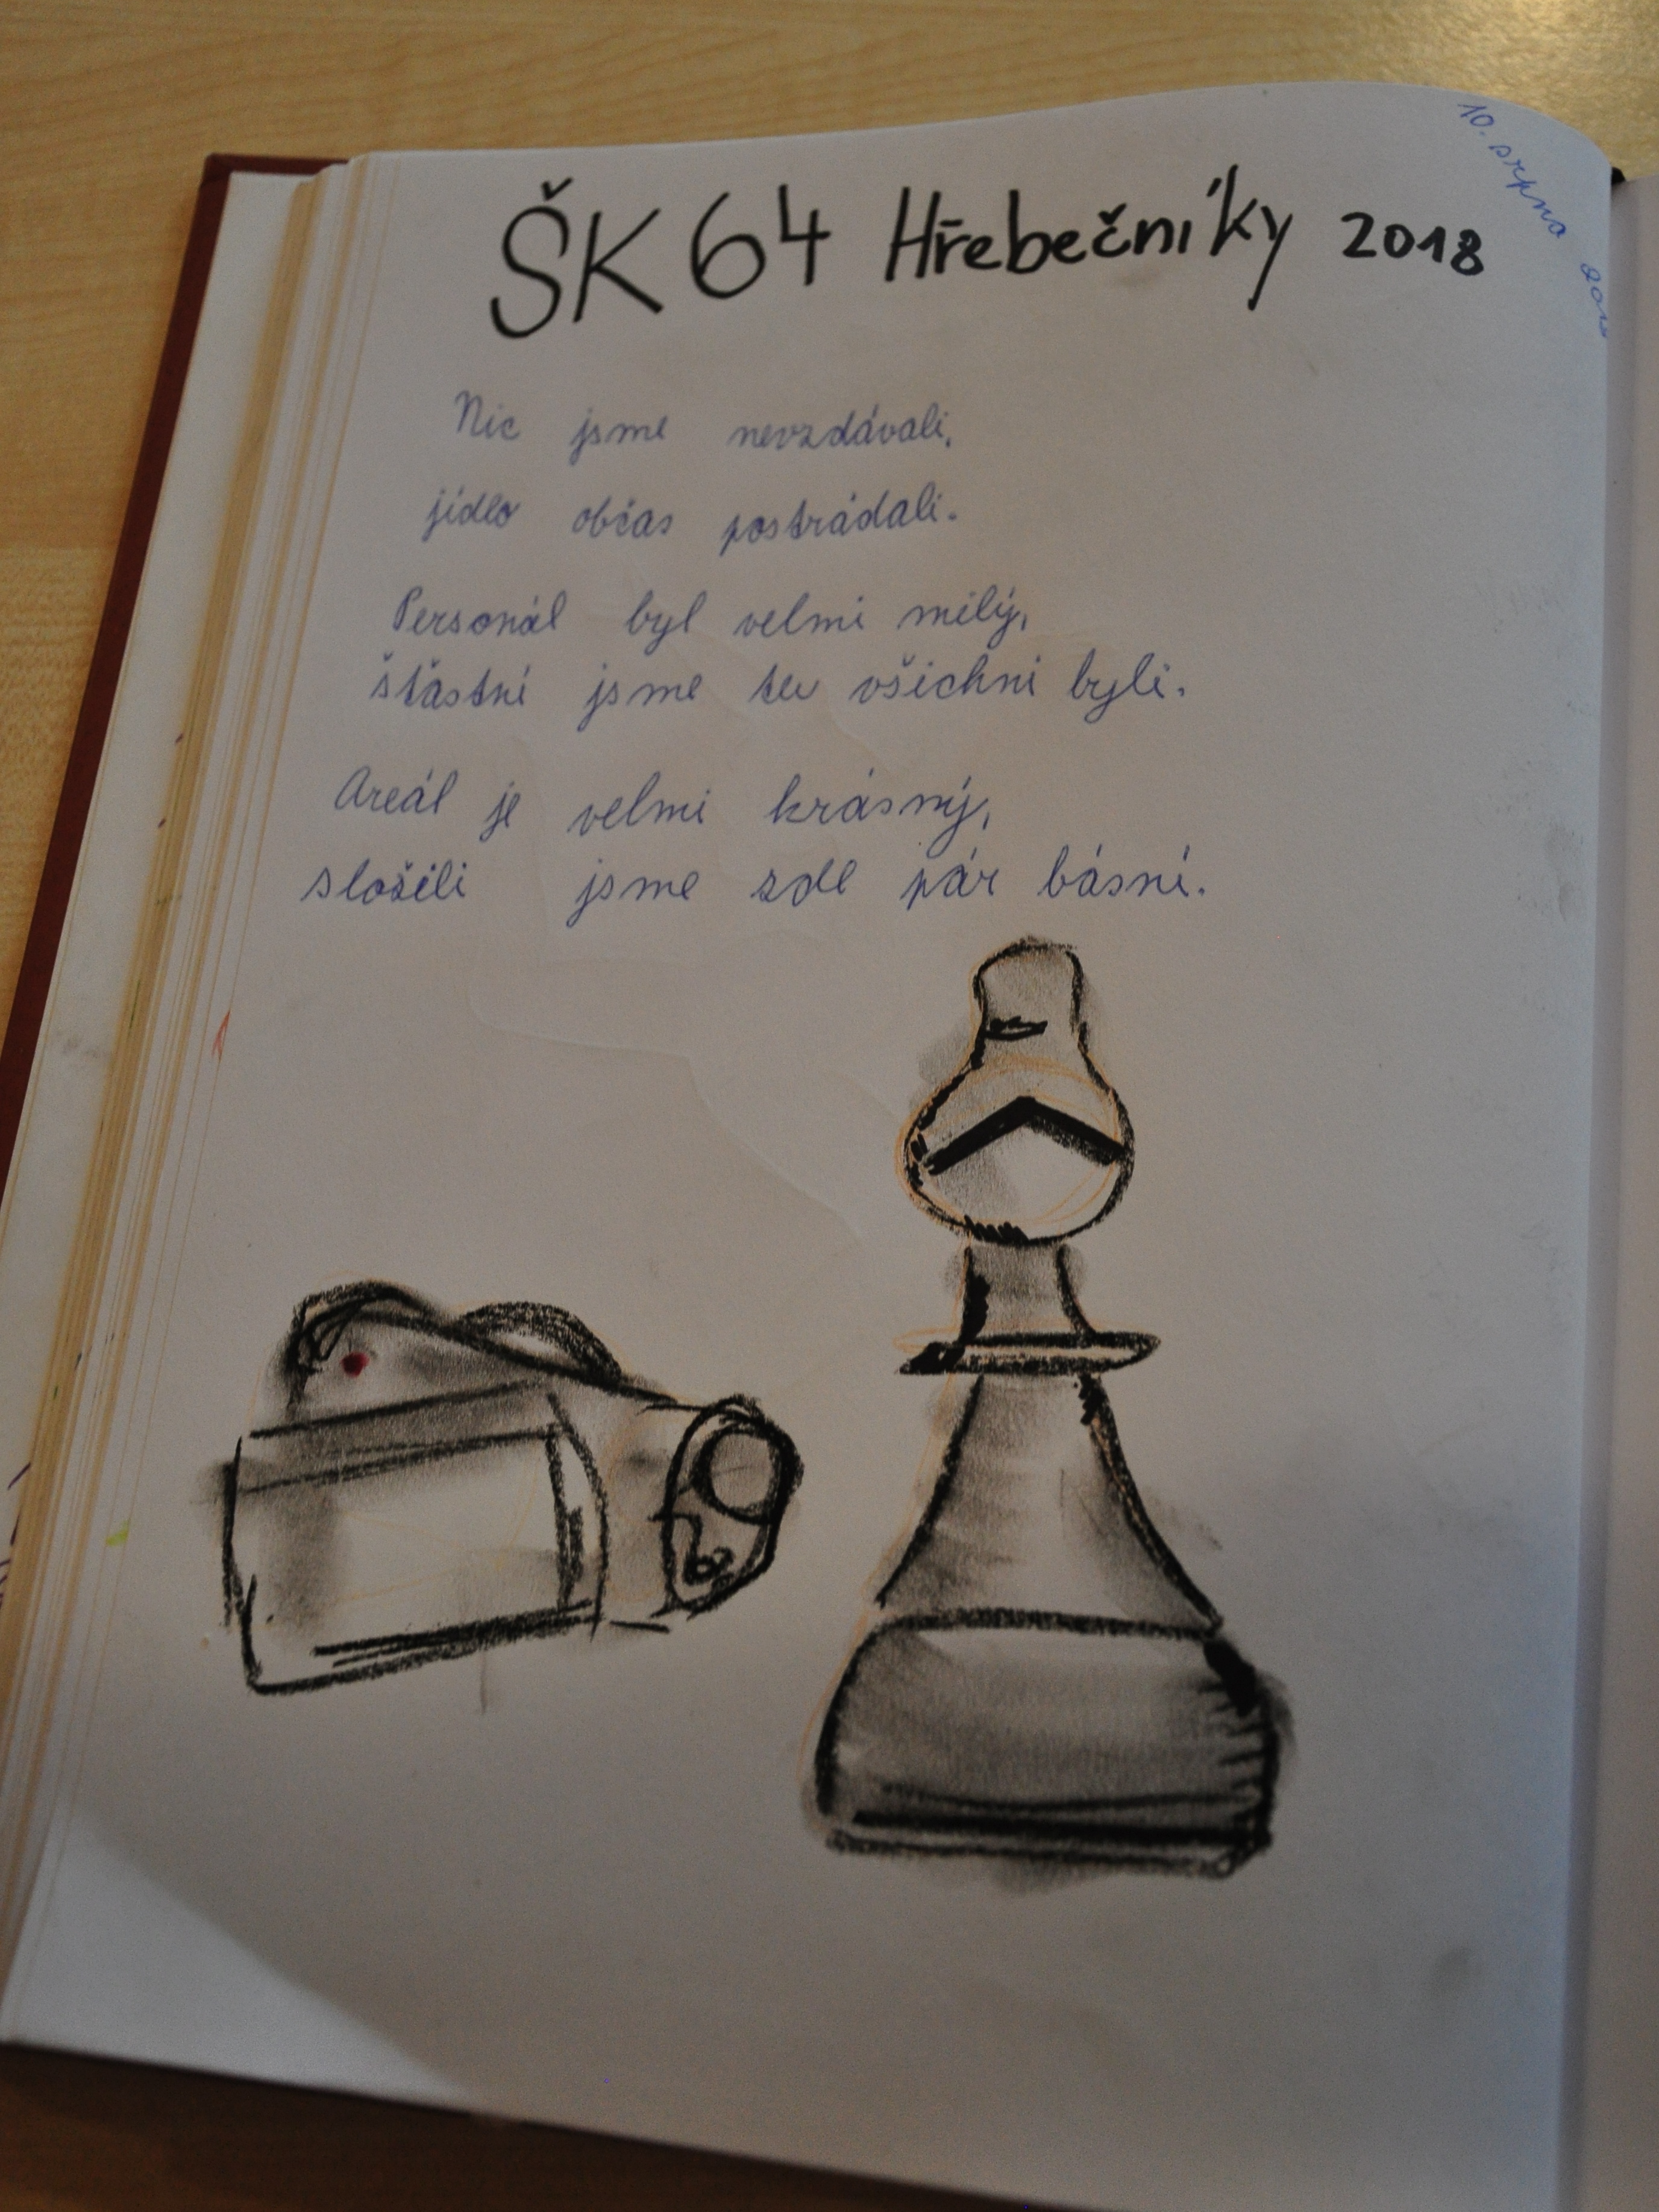 ŠK 64 Hřebečníky 2018
10. srpna 2018
Nic jsme nevzdávali,
jídlo občas postrádali.
Personál byl velmi milý,
šťastní jsme tu všichni byli.
Areál je velmi krásný,
složili jsme zde pár básní.